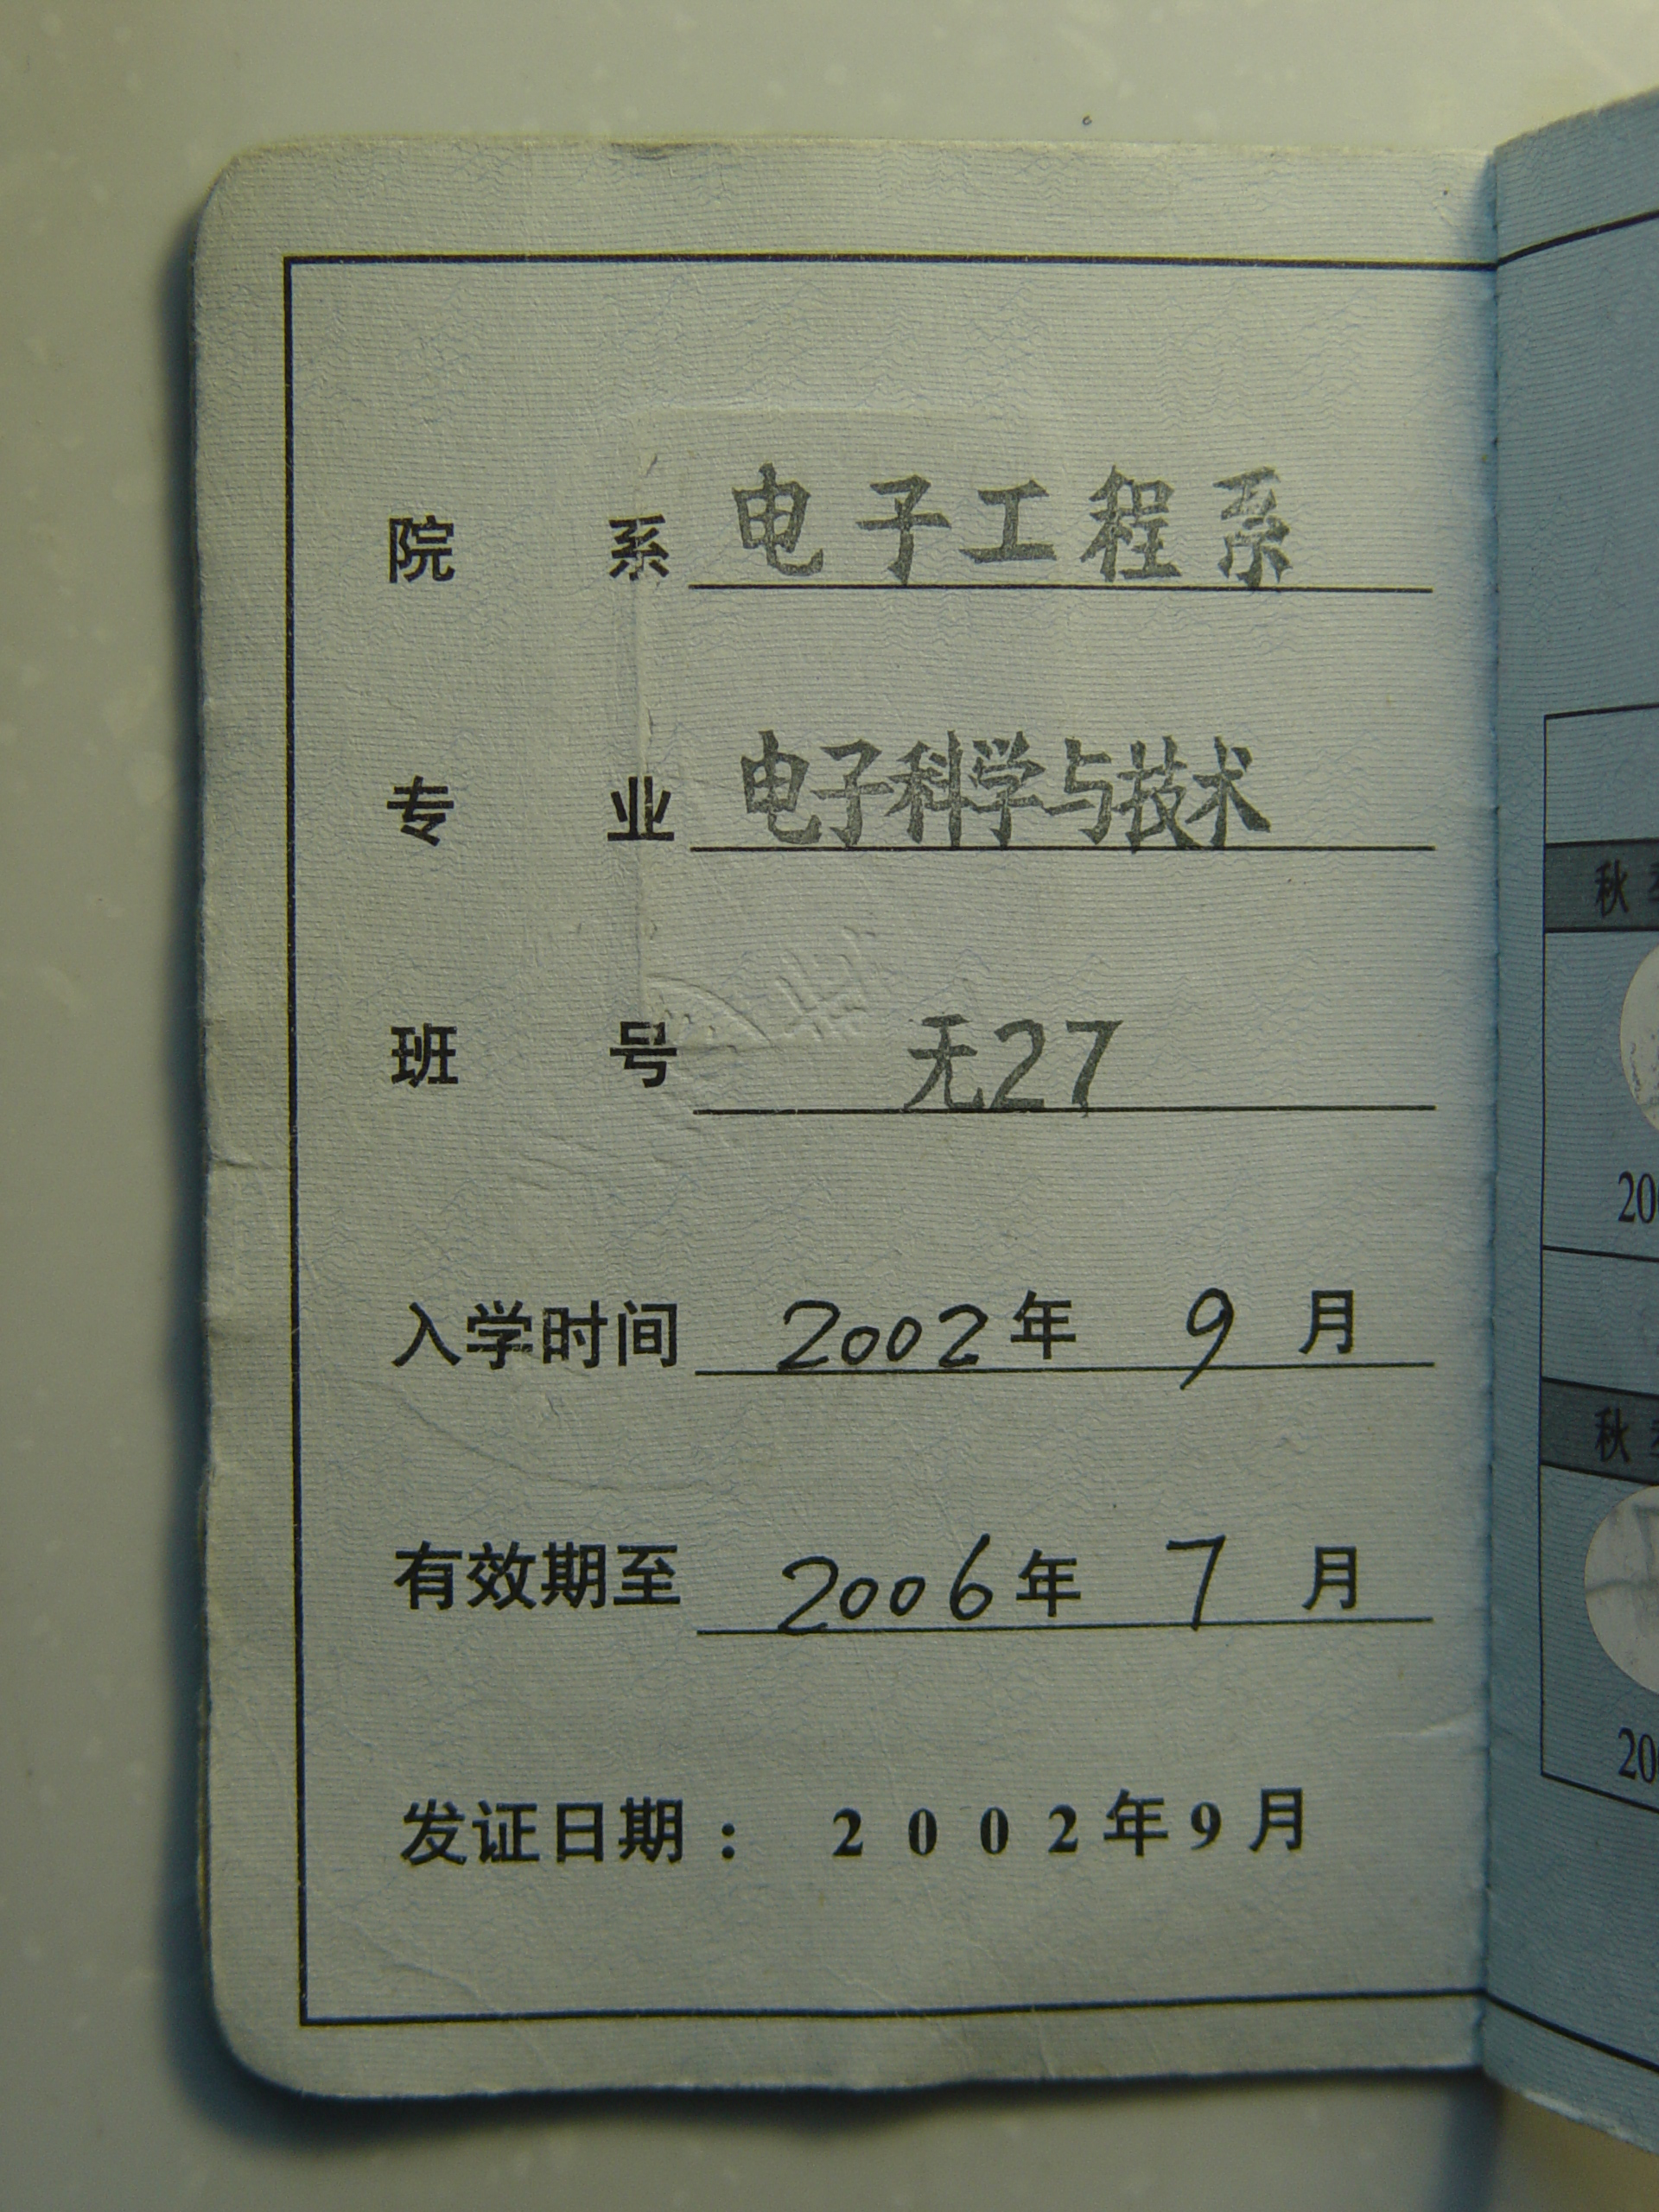 院 系 电子工程系
专 业 电子科学与技术
班 号 无27
入学时间 2002年 9 月
有效期至 2006年 7 月
发证日期: 2002年9月
秋
20
秋
20